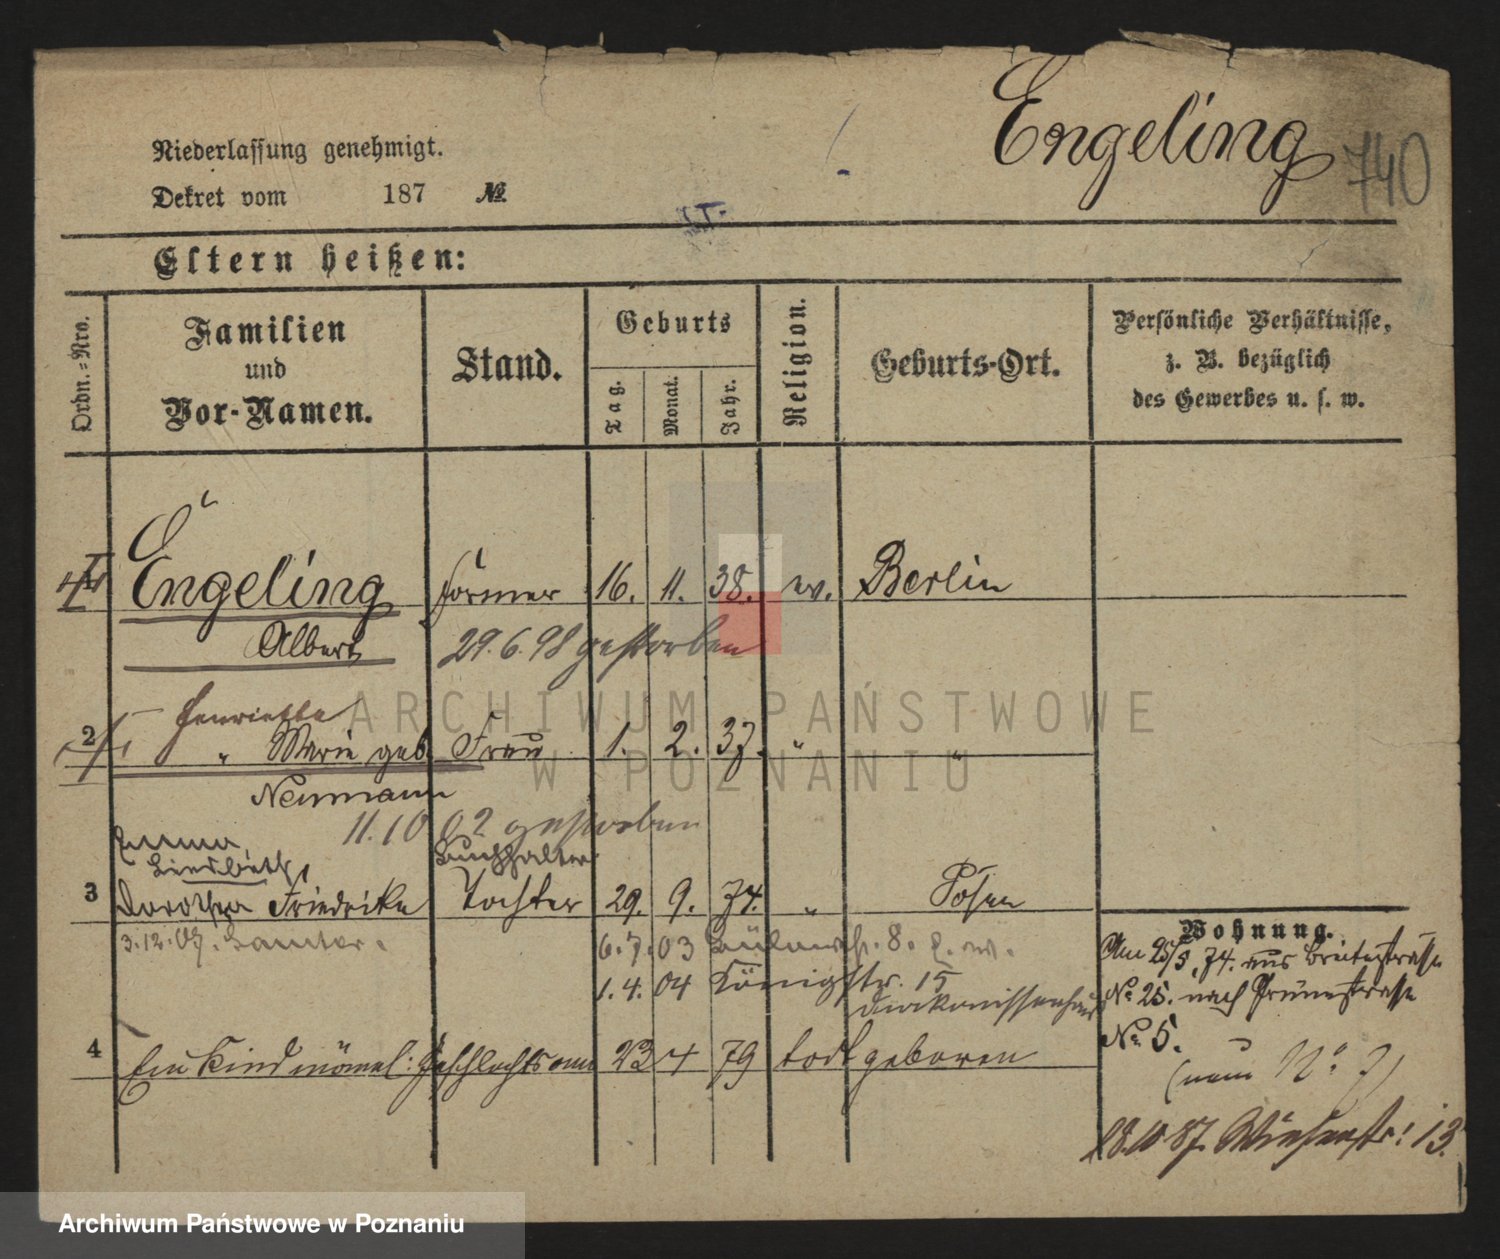 Engeling 740
Niederlassung genehmigt.
Dekret vom 187 №
Eltern heißen:
Ordn.-Nro.
Familien
und
Vor-Namen.
Stand.
Geburts
Tag.
Monat.
Jahr.
Religion.
Geburts-Ort.
Persönliche Verhältnisse,
z. B. bezüglich
des Gewerbes u. s. w.
Engeling Former 16. 11. 38. ev. Berlin
Albert 29.6.98 gestorben
Henriette
2 " Marie geb. Frau 1. 2. 37. " "
Neumann
11.10 02 gestorben
Emma, Buchhalter
Liesbeth,
3 Dorothea Friedrike Tochter 29. 9. 74. " Posen
3.12.07. Samter.
6.7.03 8.
1.4.04 Königstr. 15
Diakonissenhaus
4 Ein Kind männl. Geschlechts am 23 4 79 todt geboren
Wohnung.
Am 25/5. 74. aus Breitestrasse
No 25. nach Grünestrasse
No 5.
(nun No 7)
18.10 87. Wiesenstr. 13.
ARCHIWUM PAŃSTWOWE
W POZNANIU
Archiwum Państwowe w Poznaniu